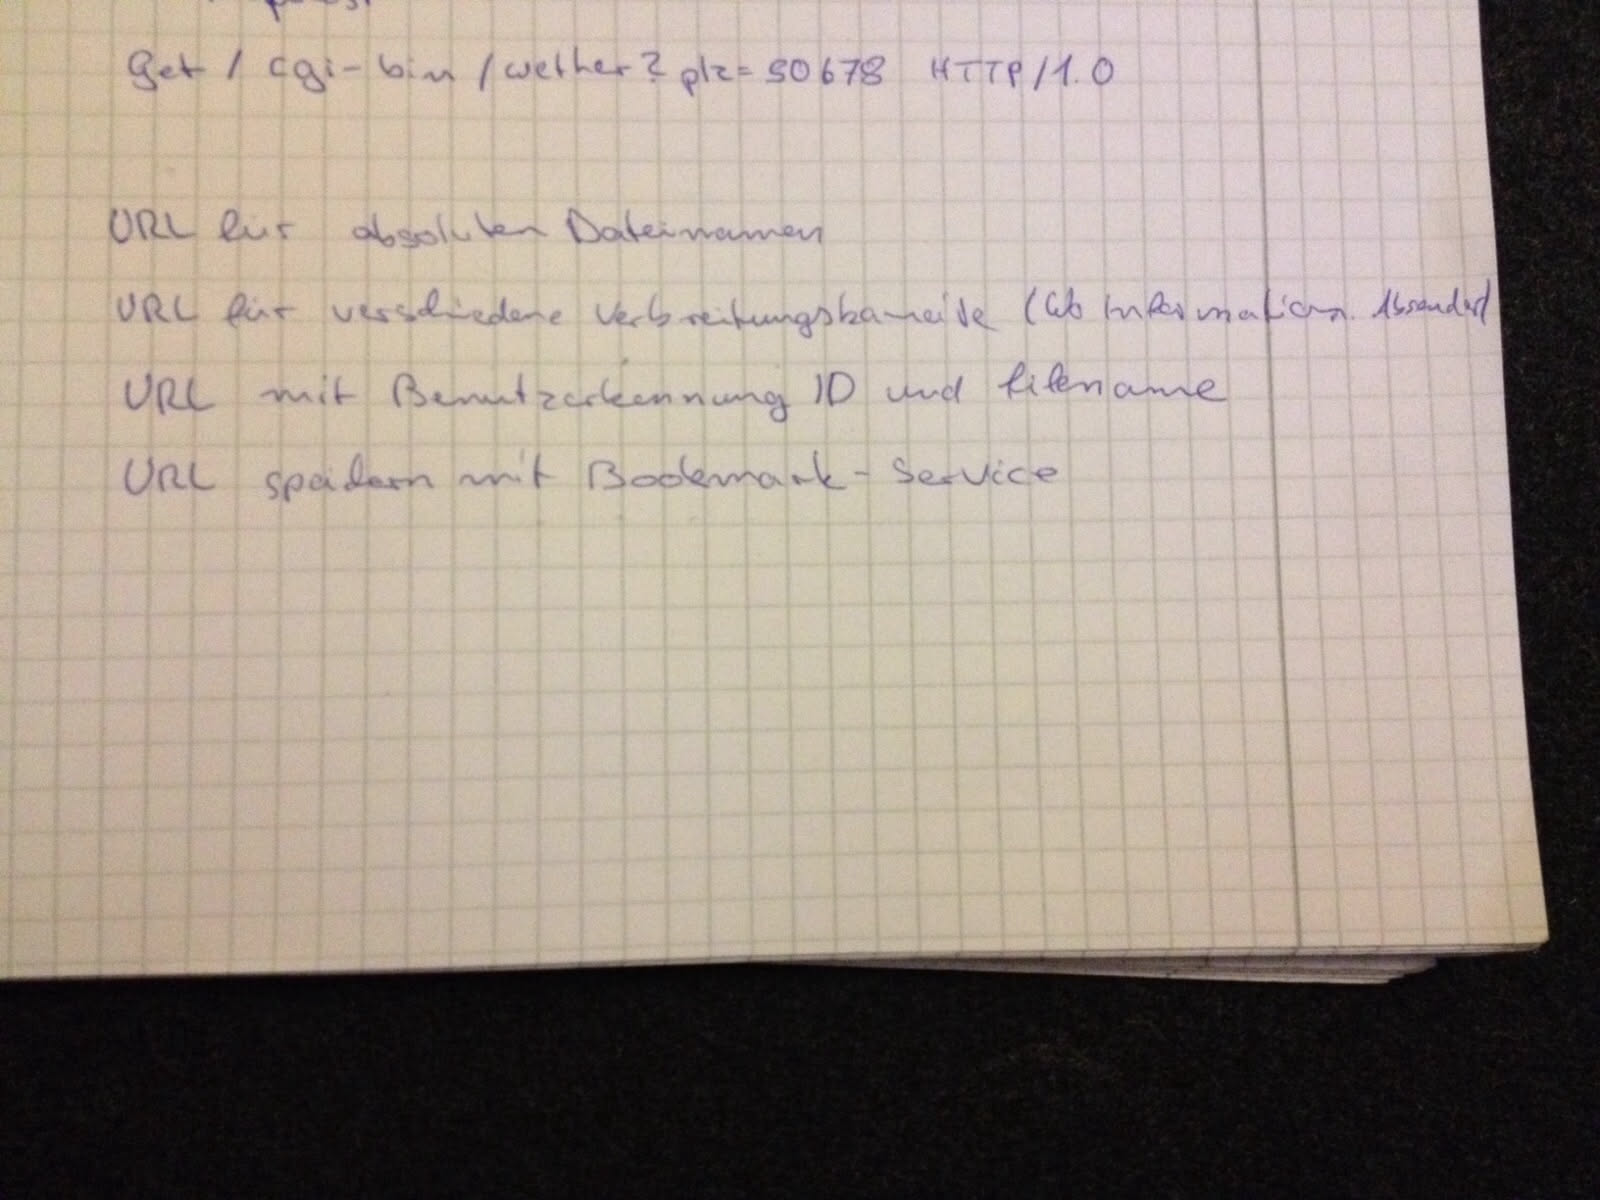 Get / cgi-bin / wether? plz=50678 HTTP/1.0
URL für absoluten Dateinamen
URL für verschiedene Verbreitungs (Information. Absender)
URL mit Benutzerkennung ID und filename
URL speichern mit Bookmark-Service